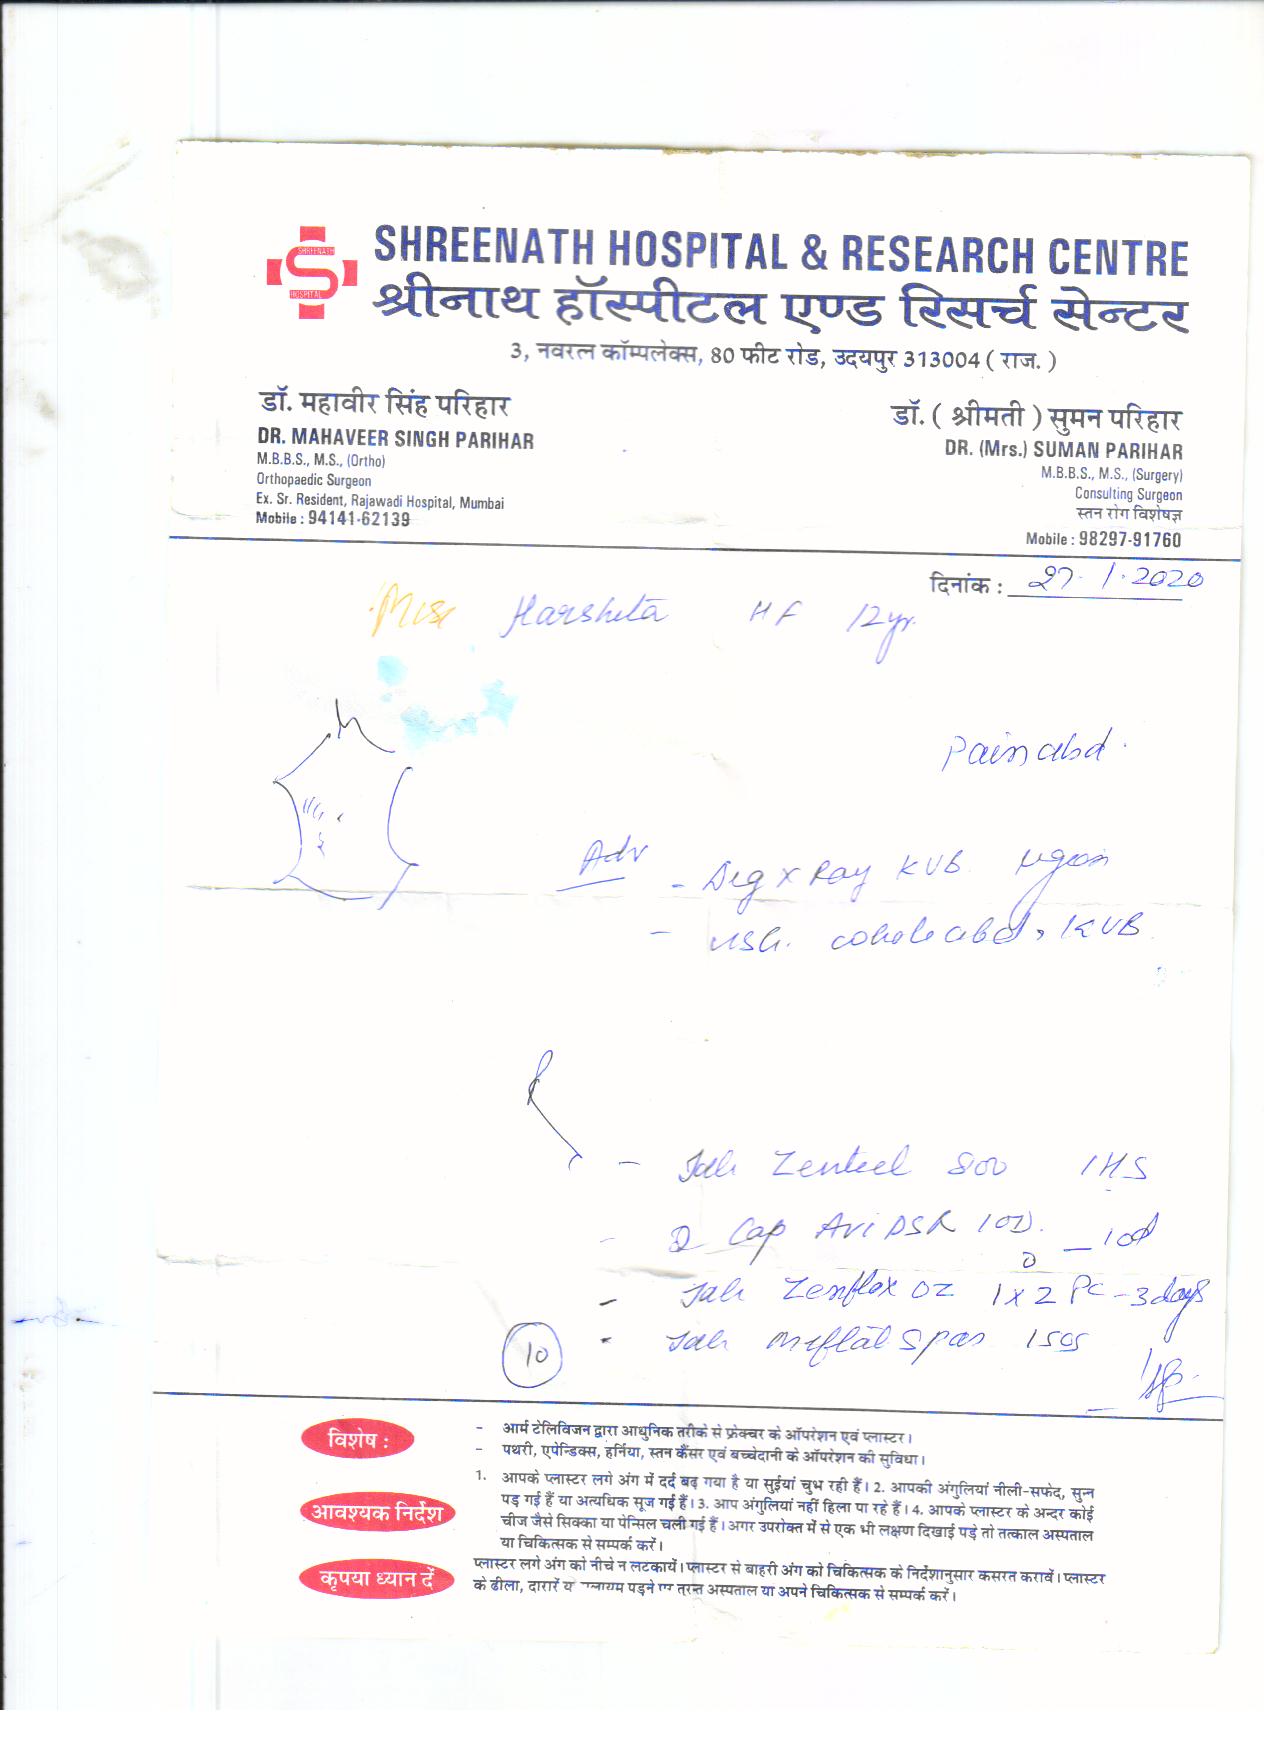 SHREENATH
HOSPITAL
SHREENATH HOSPITAL & RESEARCH CENTRE
श्रीनाथ हॉस्पीटल एण्ड रिसर्च सेन्टर
3, नवरत्न कॉम्पलेक्स, 80 फीट रोड, उदयपुर 313004 ( राज. )
डॉ. महावीर सिंह परिहार
DR. MAHAVEER SINGH PARIHAR
M.B.B.S., M.S., (Ortho)
Orthopaedic Surgeon
Ex. Sr. Resident, Rajawadi Hospital, Mumbai
Mobile : 94141-62139
डॉ. ( श्रीमती ) सुमन परिहार
DR. (Mrs.) SUMAN PARIHAR
M.B.B.S., M.S., (Surgery)
Consulting Surgeon
स्तन रोग विशेषज्ञ
Mobile : 98297-91760
दिनांक : 27.1.2020
Miss Harshita HF 12yr.
Pain abd.
Adv
- Dig X Ray KUB
- USG. whole abd, KUB
- Tab Zentel 800 1HS
- Cap Avi DSR 1OD. - 10d
- Tab Zenflox OZ 1x2 PC - 3days
- Tab Meftal Spas 1SOS
10
विशेष :
- आर्म टेलिविजन द्वारा आधुनिक तरीके से फ्रेक्चर के ऑपरेशन एवं प्लास्टर।
- पथरी, एपेन्डिक्स, हर्निया, स्तन कैंसर एवं बच्चेदानी के ऑपरेशन की सुविधा।
आवश्यक निर्देश
1. आपके प्लास्टर लगे अंग में दर्द बढ़ गया है या सुईयां चुभ रही हैं। 2. आपकी अंगुलियां नीली-सफेद, सुन्न
पड़ गई हैं या अत्यधिक सूज गई हैं। 3. आप अंगुलियां नहीं हिला पा रहे हैं। 4. आपके प्लास्टर के अन्दर कोई
चीज जैसे सिक्का या पेन्सिल चली गई हैं। अगर उपरोक्त में से एक भी लक्षण दिखाई पड़े तो तत्काल अस्पताल
या चिकित्सक से सम्पर्क करें।
कृपया ध्यान दें
प्लास्टर लगे अंग को नीचे न लटकायें। प्लास्टर से बाहरी अंग को चिकित्सक के निर्देशानुसार कसरत करावें। प्लास्टर
के ढीला, दारारें य पड़ने पर तुरन्त अस्पताल या अपने चिकित्सक से सम्पर्क करें।